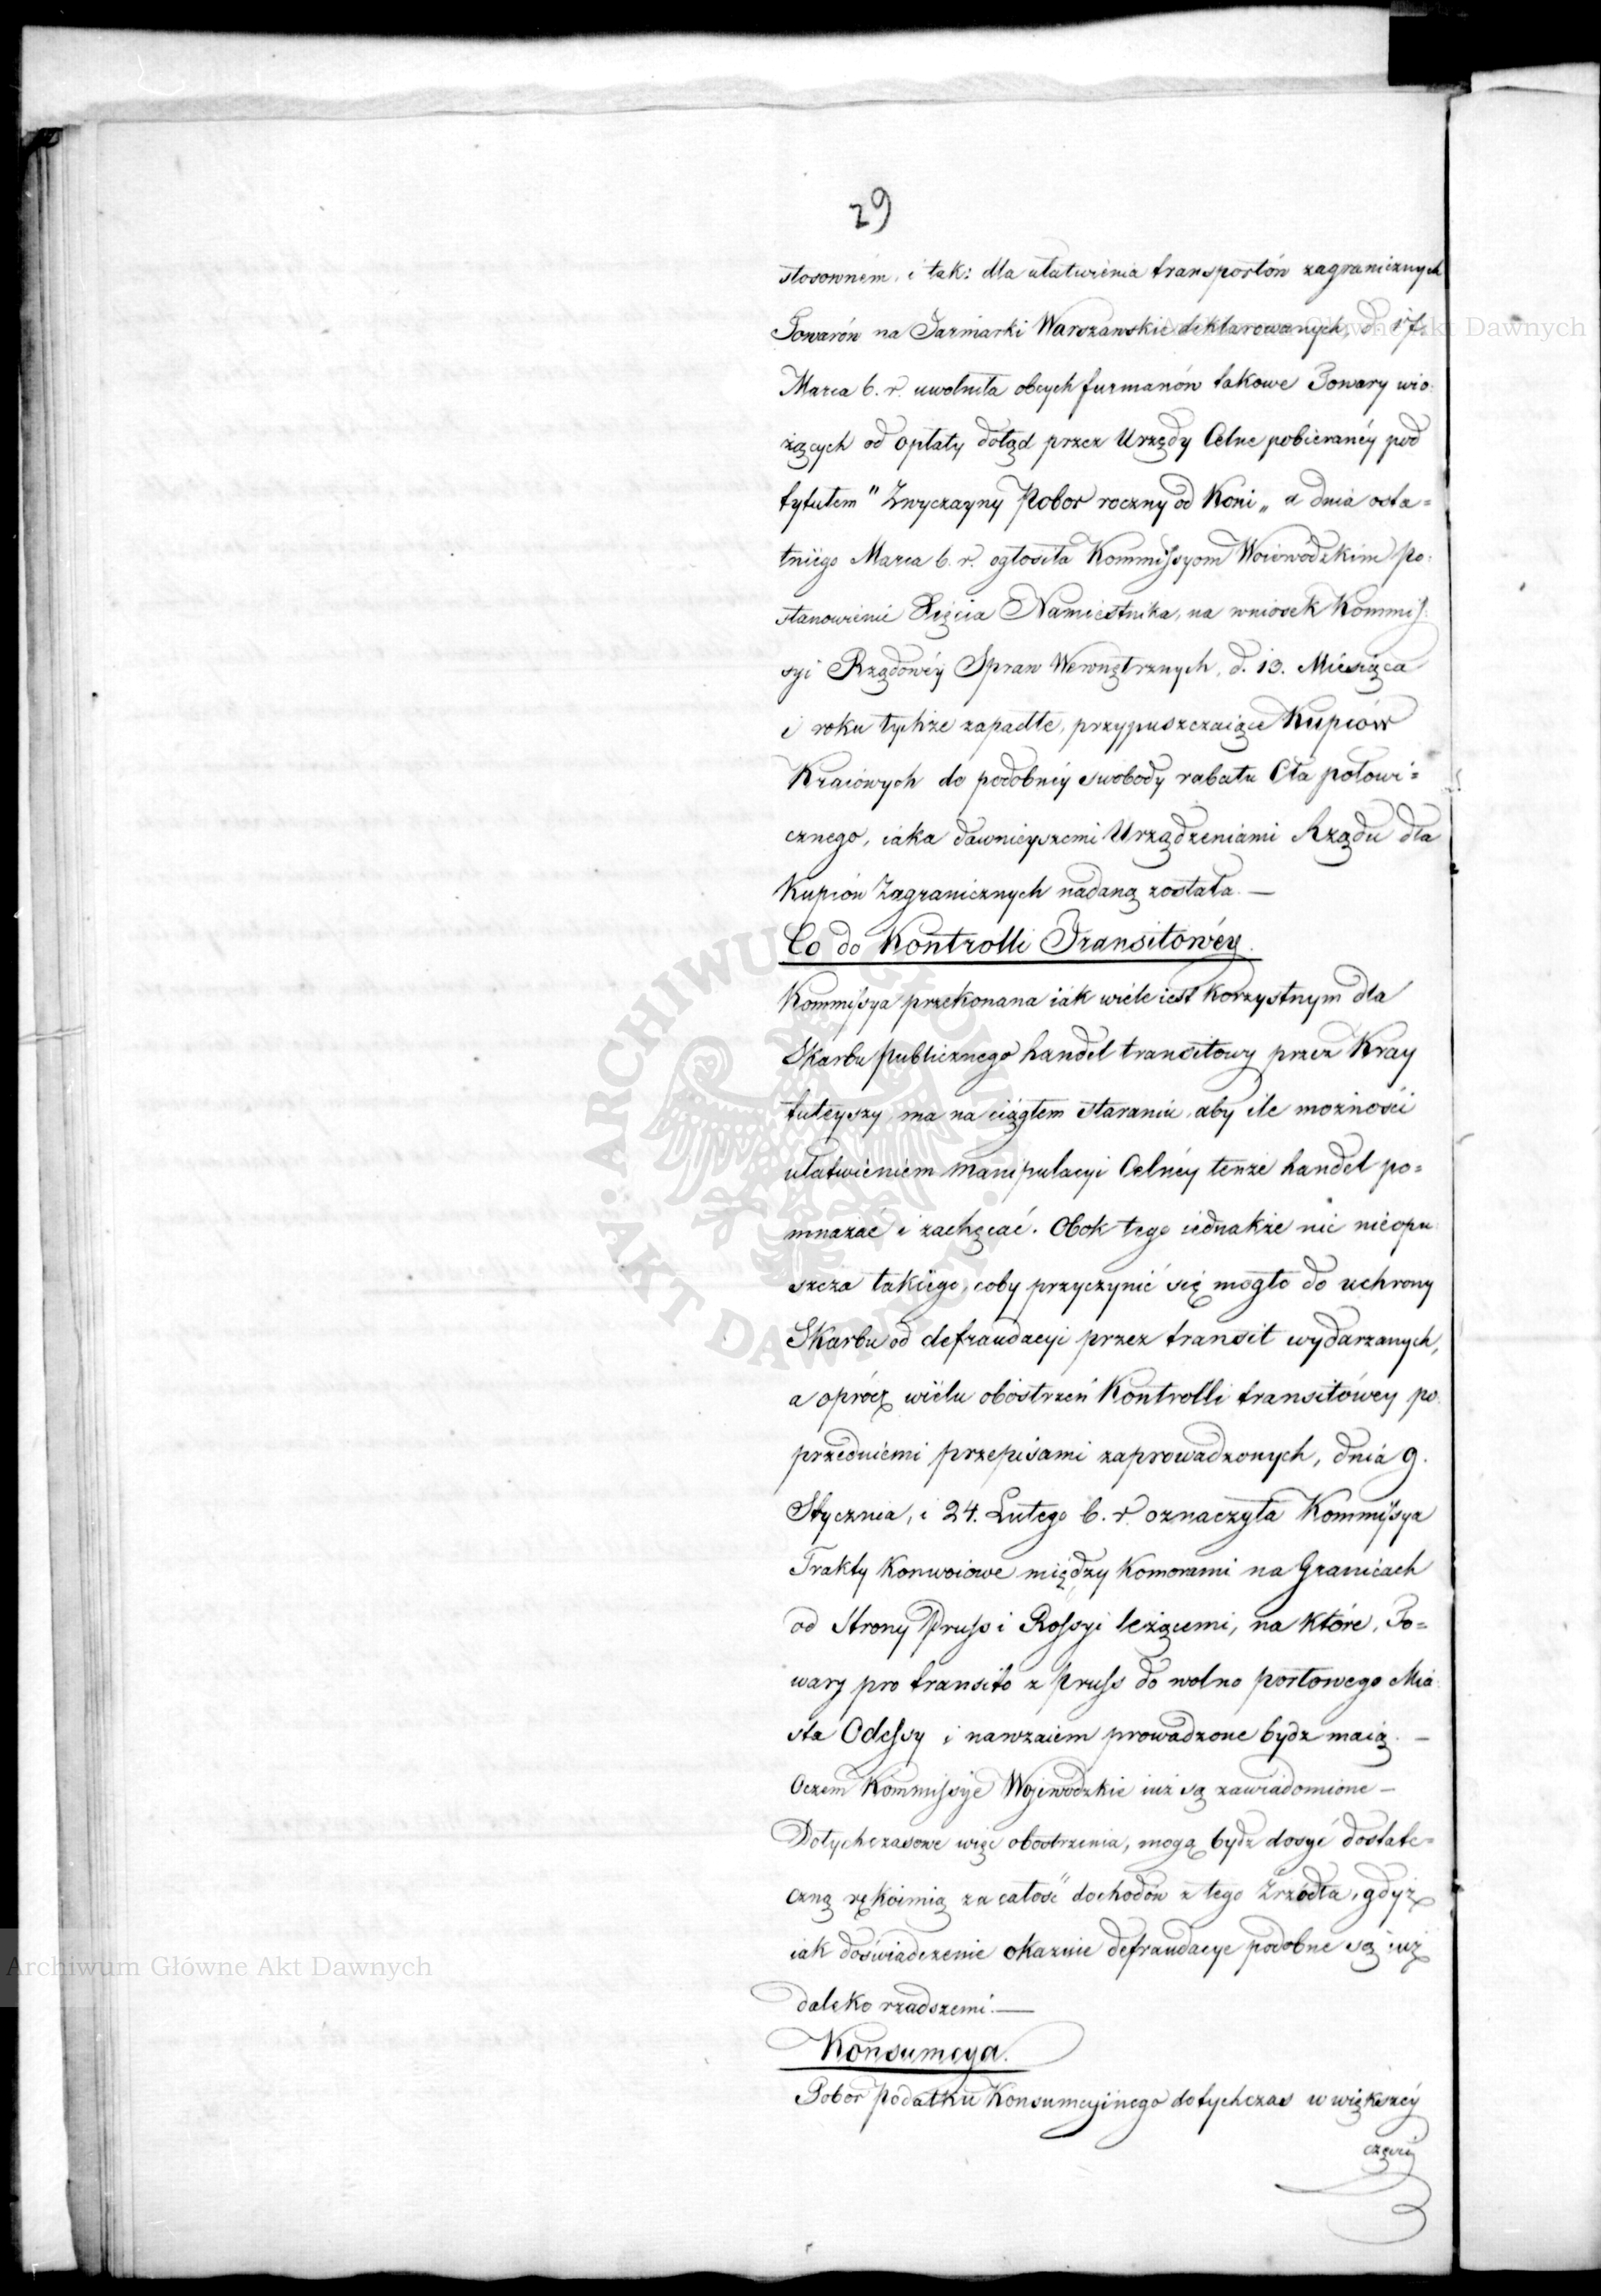 29
stosowném, i tak: dla ułatwienia transportów zagranicznych
Towarów na Jarmarki Warszawskie deklarowanych, d. 17.
Marca b. r. uwolniła obcych furmanów takowe Towary wio-
żących od opłaty dotąd przez Urzędy Celne pobieranéy pod
tytułem "Zwyczayny Pobór roczny od Koni„ a dnia osta=
tniego Marca b. r. ogłosiła Kommissyom Woiewódzkim po-
stanowienie Xięcia Namiestnika, na wniosek Kommis-
syi Rządowéy Spraw Wewnętrznych, d. 13. Miesiąca
i roku tychże zapadłe, przypuszczaiące Kupców
Kraiowych do podobnéy swobody rabatu Cła połowi=
cznego, iaka dawnieyszemi Urządzeniami Rządu dla
Kupców Zagranicznych nadaną została. —
Co do Kontrolli Transitowéy.
Kommissya przekonana iak wiele iest korzystnym dla
Skarbu publicznego handel transitowy przez Kray
tuteyszy, ma na ciągłem staraniu, aby ile możności
ułatwieniem manipulacyi Celnéy tenże handel po=
mnażać i zachęcać. Obok tego iednakże nic nieopu-
szcza takiego, coby przyczynić się mogło do uchrony
Skarbu od defraudacyi przez transit wydarzanych,
a oprócz wielu obostrzeń Kontrolli transitówey po-
przedniemi przepisami zaprowadzonych, dnia 9.
Stycznia, i 24. Lutego b. r. oznaczyła Kommissya
Trakty Konwoiowe między Komorami na Granicach
od Strony Pruss i Rossyi leżącemi, na które, To=
wary pro transito z Pruss do wolno portowego Mia-
sta Odessy i nawzaiem prowadzone bydź maią. —
Oczem Kommissye Wojewódzkie iuż są zawiadomione —
Dotychczasowe więc obostrzenia, mogą bydź dosyć dostate=
czną rękoimią za całość dochodów z tego źrzódła, gdyż
iak doświadczenie okazuie defraudacye podobne są iuż
daleko rzadszemi. —
Konsumcya.
Pobór podatku Konsumcyinego dotychczas w większéy
części
Archiwum Główne Akt Dawnych
Archiwum Główne Akt Dawnych
ARCHIWUM GŁÓWNE AKT DAWNYCH